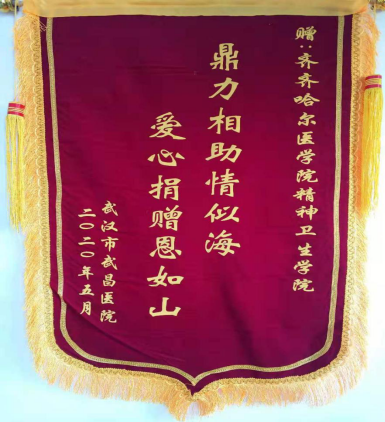 赠：齐齐哈尔医学院精神卫生学院
鼎力相助情似海
爱心捐赠恩如山
武汉市武昌医院
二〇二〇年五月